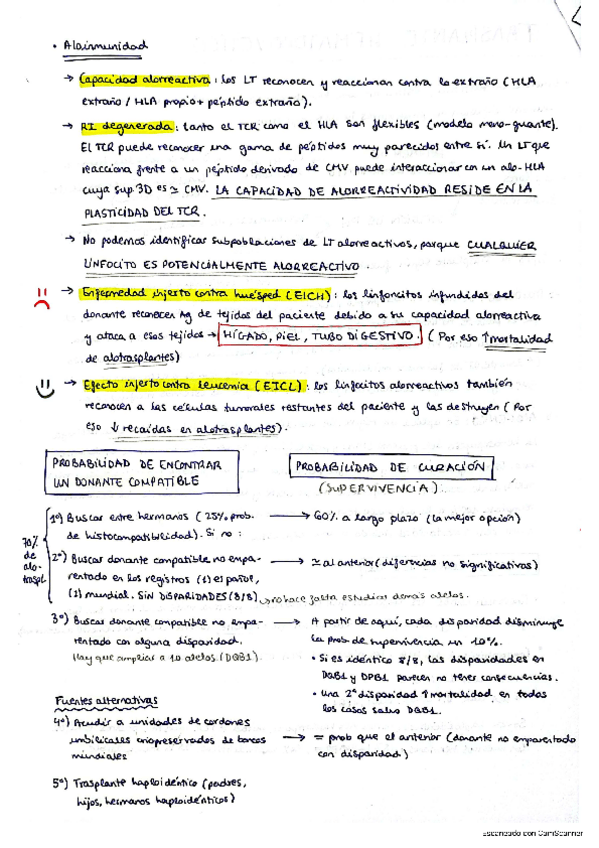 • Aloinmunidad
→ Capacidad alorreactiva: los LT reconocen y reaccionan contra lo extraño (HLA
extraño / HLA propio + péptido extraño).
→ RI degenerada: tanto el TCR como el HLA son flexibles (modelo mano-guante).
El TCR puede reconocer una gama de péptidos muy parecidos entre sí. Un LT que
reacciona frente a un péptido derivado de CMV puede interaccionar con un alo-HLA
cuya sup. 3D es ≃ CMV. LA CAPACIDAD DE ALORREACTIVIDAD RESIDE EN LA
PLASTICIDAD DEL TCR.
→ No podemos identificar subpoblaciones de LT alorreactivos, porque CUALQUIER
LINFOCITO ES POTENCIALMENTE ALORREACTIVO.
→ Enfermedad injerto contra huésped (EICH): los linfoncitos infundidos del
donante reconocen Ag de tejidos del paciente debido a su capacidad alorreactiva
y ataca a esos tejidos → HÍGADO, PIEL, TUBO DIGESTIVO. (Por eso ↑mortalidad
de alotrasplantes)
→ Efecto injerto contra leucemia (EICL): los linfocitos alorreactivos también
reconocen a las células tumorales restantes del paciente y las destruyen (Por
eso ↓ recaídas en alotrasplantes).
PROBABILIDAD DE ENCONTRAR
UN DONANTE COMPATIBLE
PROBABILIDAD DE CURACIÓN
(SUPERVIVENCIA)
70%
de
alo-
traspl.
1º) Buscar entre hermanos (25% prob.
de histocompatibilidad). Si no:
→ 60% a largo plazo (la mejor opción)
2º) Buscar donante compatible no empa-
rentado en los registros (1) el países,
(2) mundial. SIN DISPARIDADES (8/8) ↳ no hace falta estudiar demás alelos.
→ ≃ al anterior (diferencias no significativas)
3º) Buscar donante compatible no empa-
rentado con alguna disparidad.
Hay que ampliar a 10 alelos (DQB1).
→ A partir de aquí, cada disparidad disminuye
la prob de supervivencia un 10%.
• Si es idéntico 8/8, las disparidades en
DQB1 y DPB1 parecen no tener consecuencias.
• Una 2ª disparidad ↑mortalidad en todos
los casos salvo DQB1.
Fuentes alternativas
4º) Acudir a unidades de cordones
umbilicales criopreservados de bancos
mundiales
→ = prob que el anterior (donante no emparentado
con disparidad)
5º) Trasplante haploidéntico (padres,
hijos, hermanos haploidénticos)
Escaneado con CamScanner